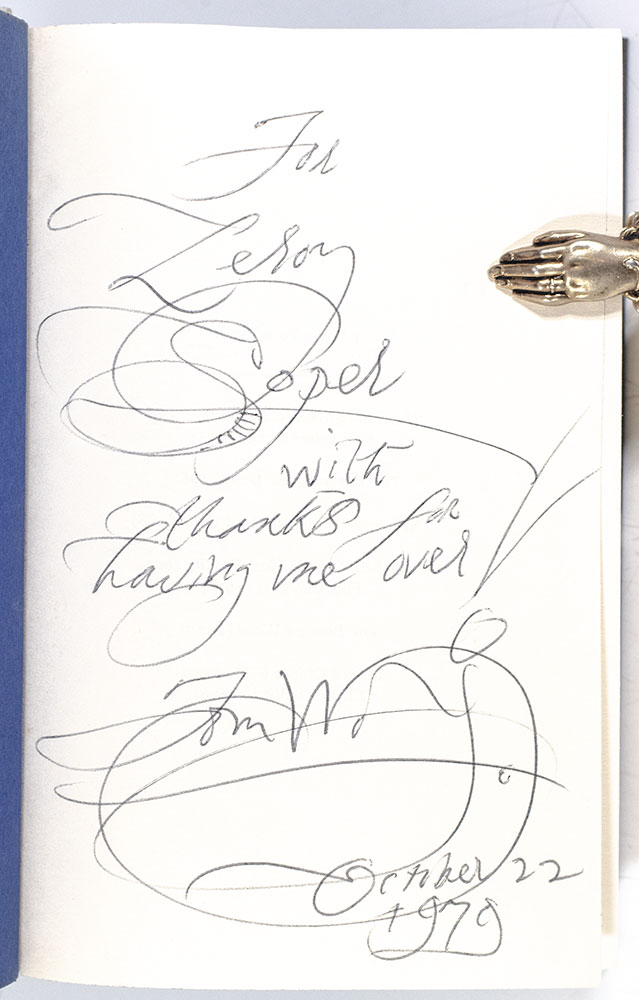 For
Leroy
Soper
with
thanks for
having me over
Tom Wolfe
October 22
1979